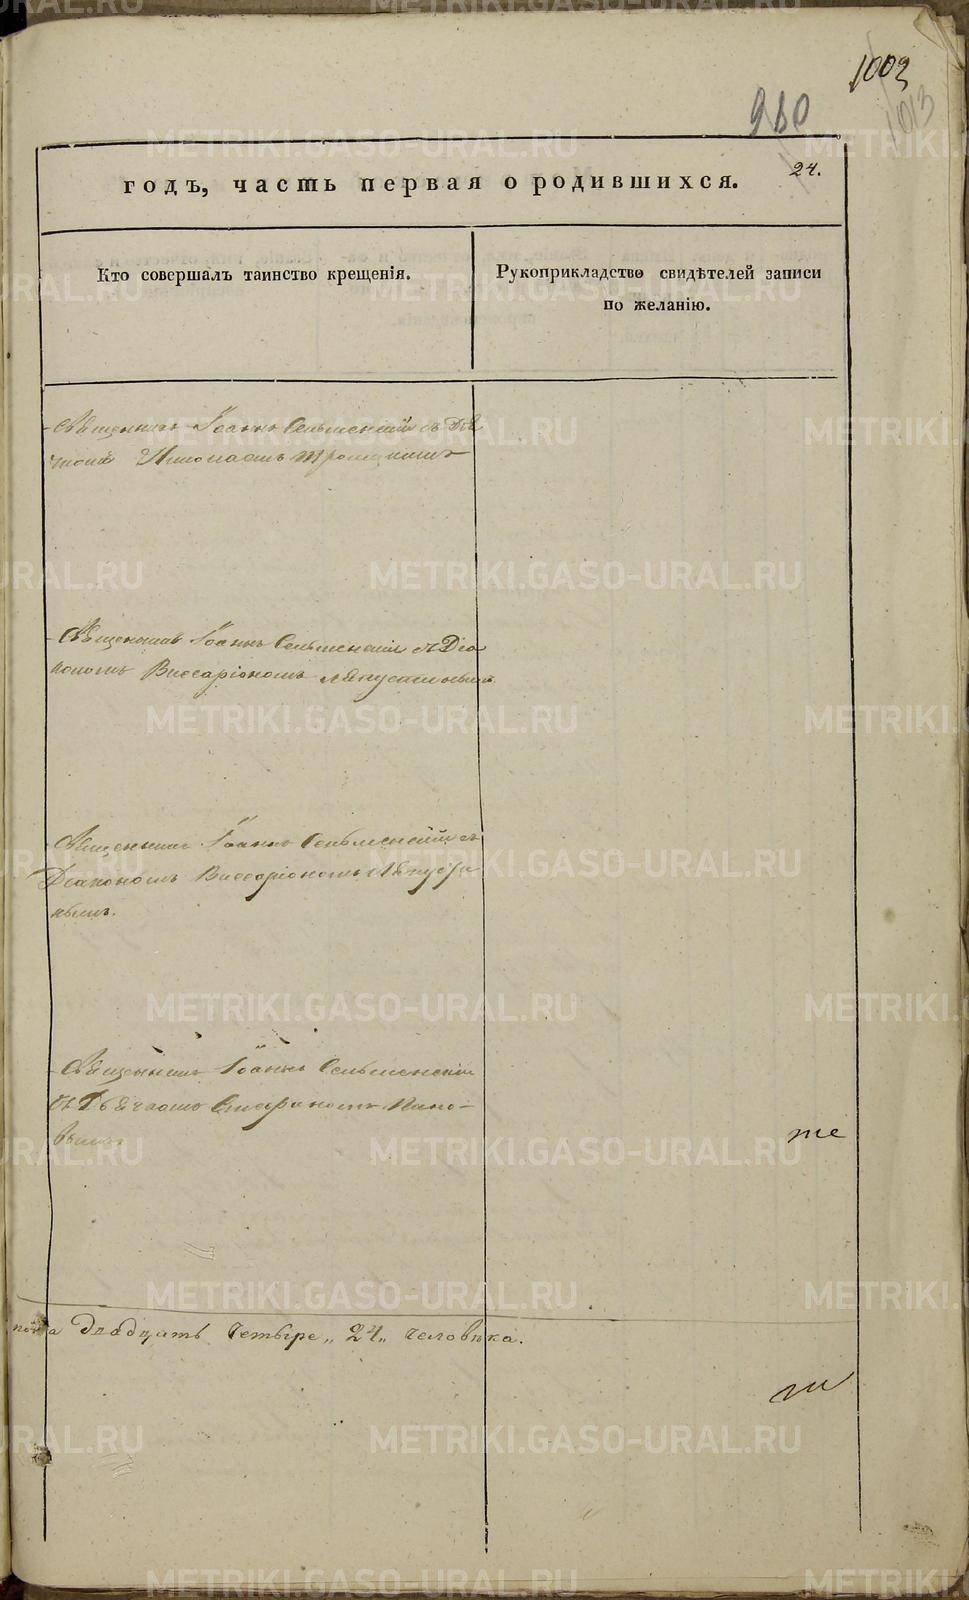 1003
1013
960
24.
годъ, часть первая о родившихся.
Кто совершалъ таинство крещенія.
Рукоприкладство свидѣтелей записи
по желанію.
Священникъ Іоаннъ Сельменскій съ Дья
Николаемъ Троицкимъ
Священникъ Іоаннъ Сельменскій съ Діа
кономъ Виссаріономъ
Священникъ Іоаннъ Сельменскій съ
Діакономъ Виссаріономъ
нымъ.
Священникъ Іоаннъ Сельменскій
съ Дьячкомъ Стефаномъ Попо-
вымъ.
те
пола двадцать четыре „24„ человѣка.
METRIKI.GASO-URAL.RU